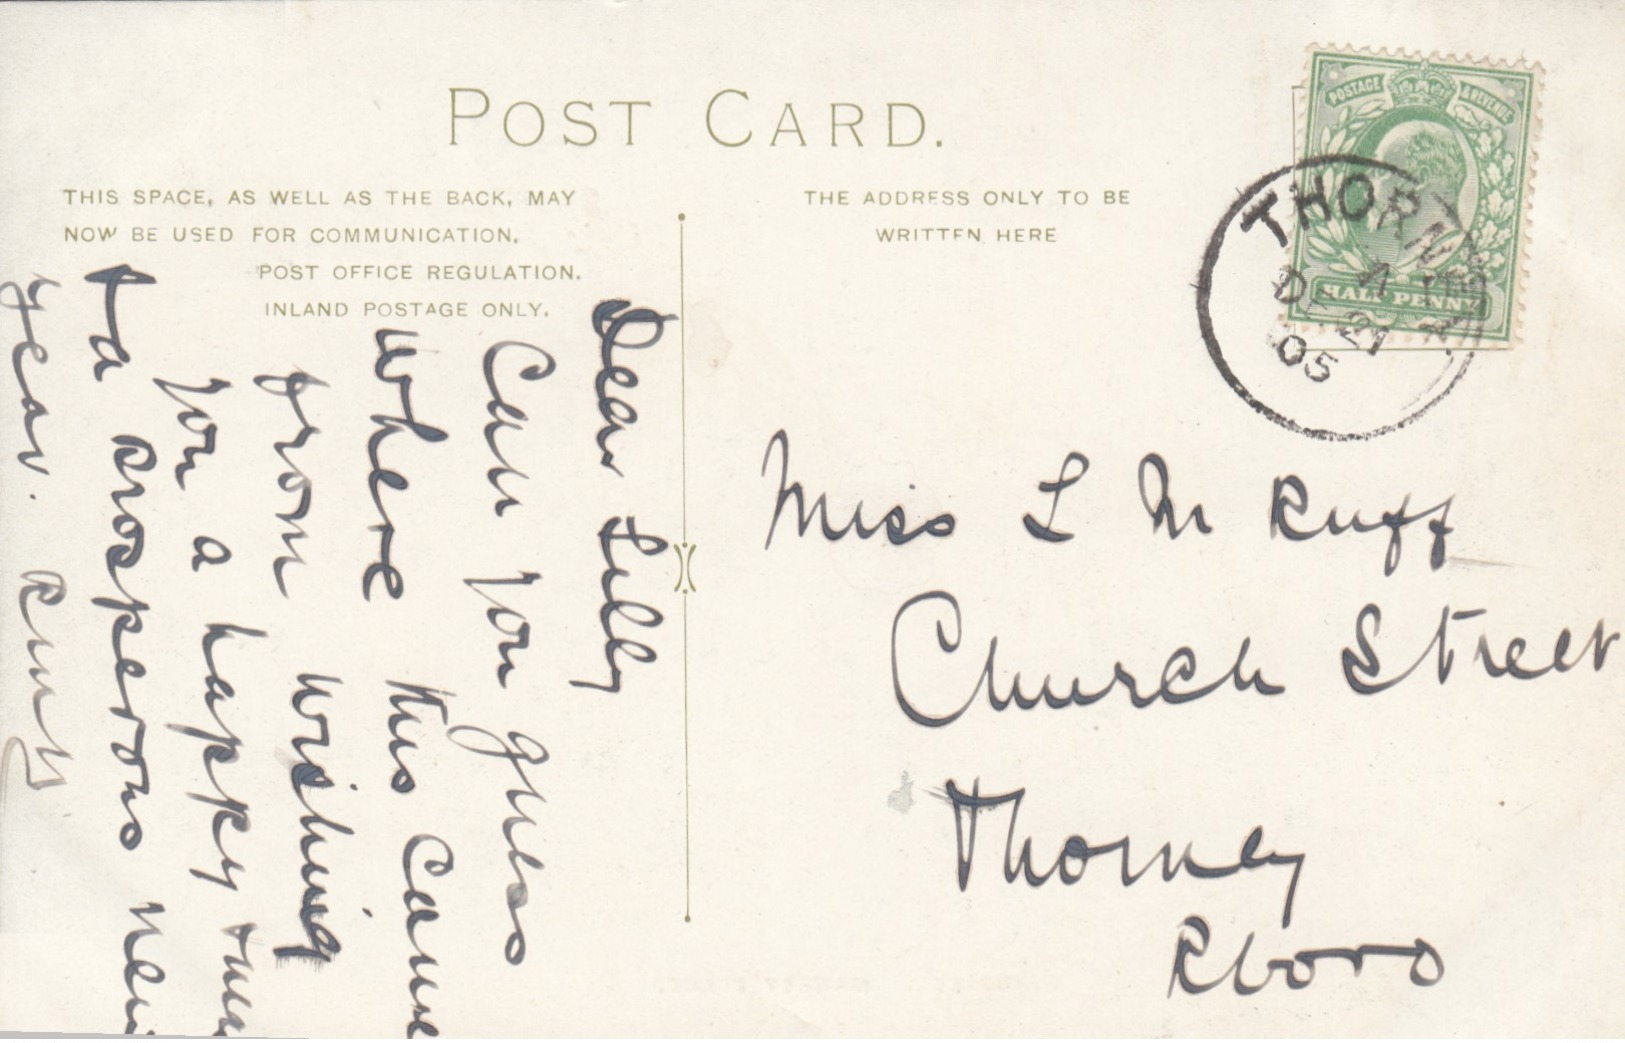 POST CARD.
THIS SPACE, AS WELL AS THE BACK, MAY
NOW BE USED FOR COMMUNICATION.
POST OFFICE REGULATION.
INLAND POSTAGE ONLY.
THE ADDRESS ONLY TO BE
WRITTEN HERE
POSTAGE & REVENUE
HALF PENNY
THORNEY
A
DE 21
05
Dear Lilly
Can you guess
where this came
from wishing
you a happy
+ a prosperous new
year.
Miss L M Ruff
Church Street
Thorney
Pboro